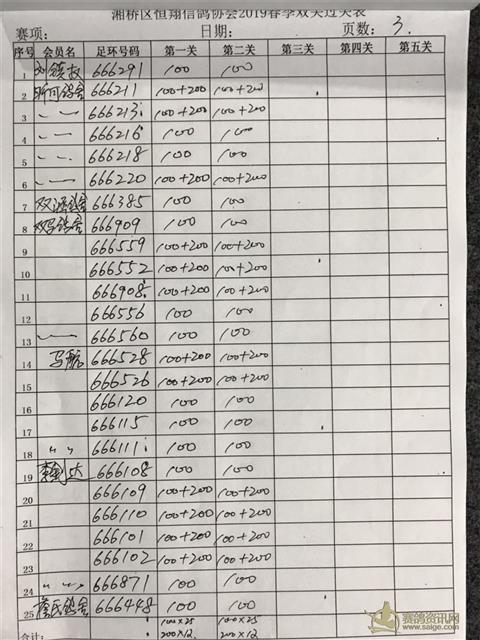 湘桥区恒翔信鸽协会2019春季双关过关表
赛项： 日期： 页数：3.
序号 会员名 足环号码 第一关 第二关 第三关 第四关 第五关
1 666291 100 100
2 666211 100+200 100+200
3 〃 一 666213 100+200 100+200
4 〃 一 666216 100 100
5 〃 一 666218 100 100
6 〃 一 666220 100+200 100+200
7 666385 100 100
8 双马鸽舍 666909 100 100
9 666559 100+200 100+200
10 666552 100+200 100+200
11 666908 100+200 100+200
12 666556 100 100
13 666560 100 100
14 马航 666528 100+200 100+200
15 666526 100+200 100+200
16 666120 100 100
17 666115 100 100
18 〃 〃 666111 100 100
19 666108 100 100
20 666109 100+200 100+200
21 666110 100+200 100+200
22 666101 100+200 100+200
23 666102 100+200 100+200
24 〃 〃 666871 100 100
25 詹氏鸽舍 666448 100 100
合计： 100×25 100×25
200×12 200×12
赛鸽资讯网
www.saige.com